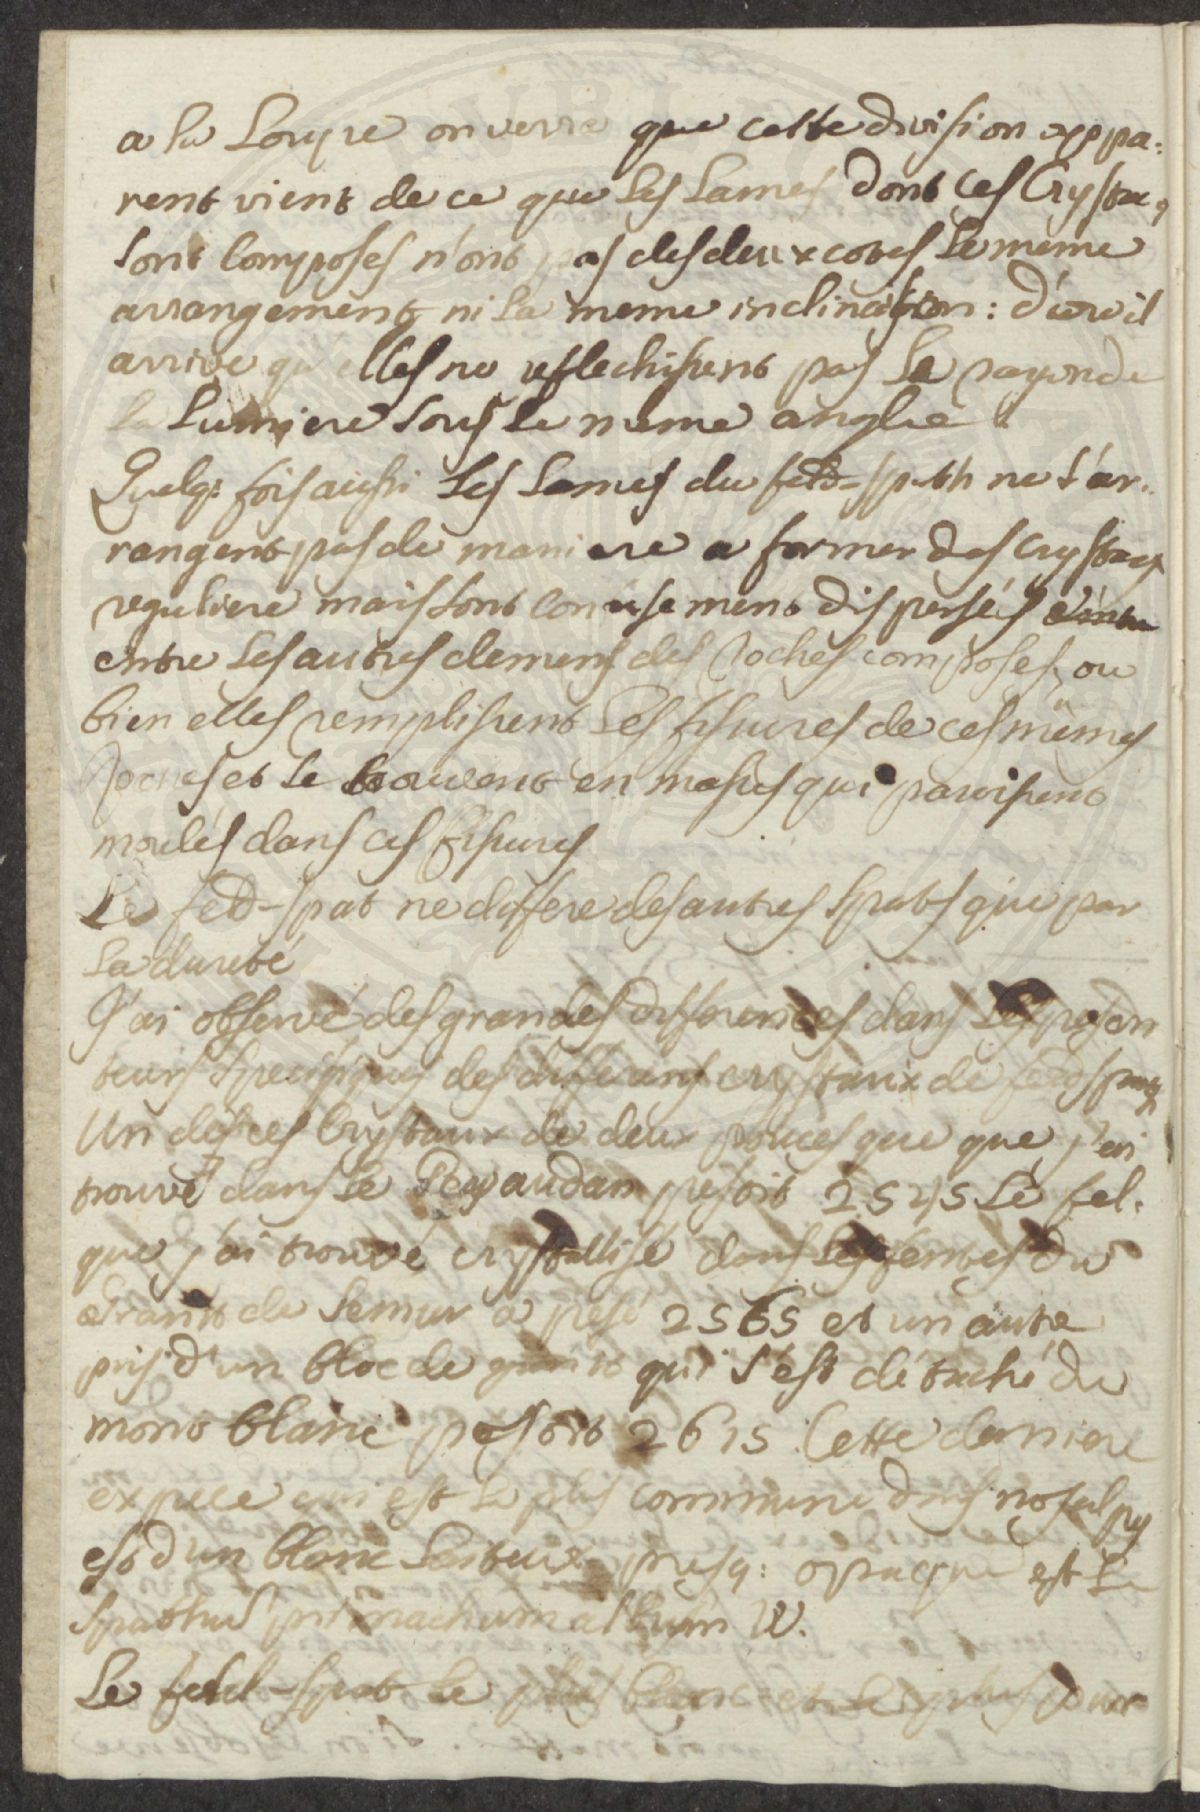 a la Loupe on verra que cette division appa:
rent vient de ce que les Lames dont ces Crystax
sont Composes n'ont pas des deux cotes le meme
arrangement ni la meme inclination: d'ou il
arrive qu'elles ne reflechissent pas le rayon de
la Lumiere sous le meme angle.
Quelq: fois aussi les Lames du feld-spath ne s'ar:
rangent pas de maniere a former des Crystaux
reguliere mais sont Confusement dispersés
entre les autres elemens des Roches composes, ou
bien elles remplissent les fissures de ces mêmes
Roches et se trouvent en masses qui paroissent
moulés dans ces fissures
Le feld-spat ne differe des autres Spats que par
la dureté
J'ai observé des grandes differences dans les pesan
teurs specifiques des differens crystaux de feldspats
Un des ces Crystaux de deux pouces que que j'ai
trouvé dans le Peyaudan pesoit 2545 Le fel.
que j'ai trouvé crystallisé dans les fentes du
Granit de Semur a pesé 2565 et un autre
pris d'un bloc de granit qui s'est détaché du
mont blanc pesoit 2615 Cette derniere
expece qui est la plus commune dans nos alpes
est d'un blanc Laiteux presq: opaque est le
Spathum pirimachum album W.
Le feld-spat le plus blanc et le plus pur